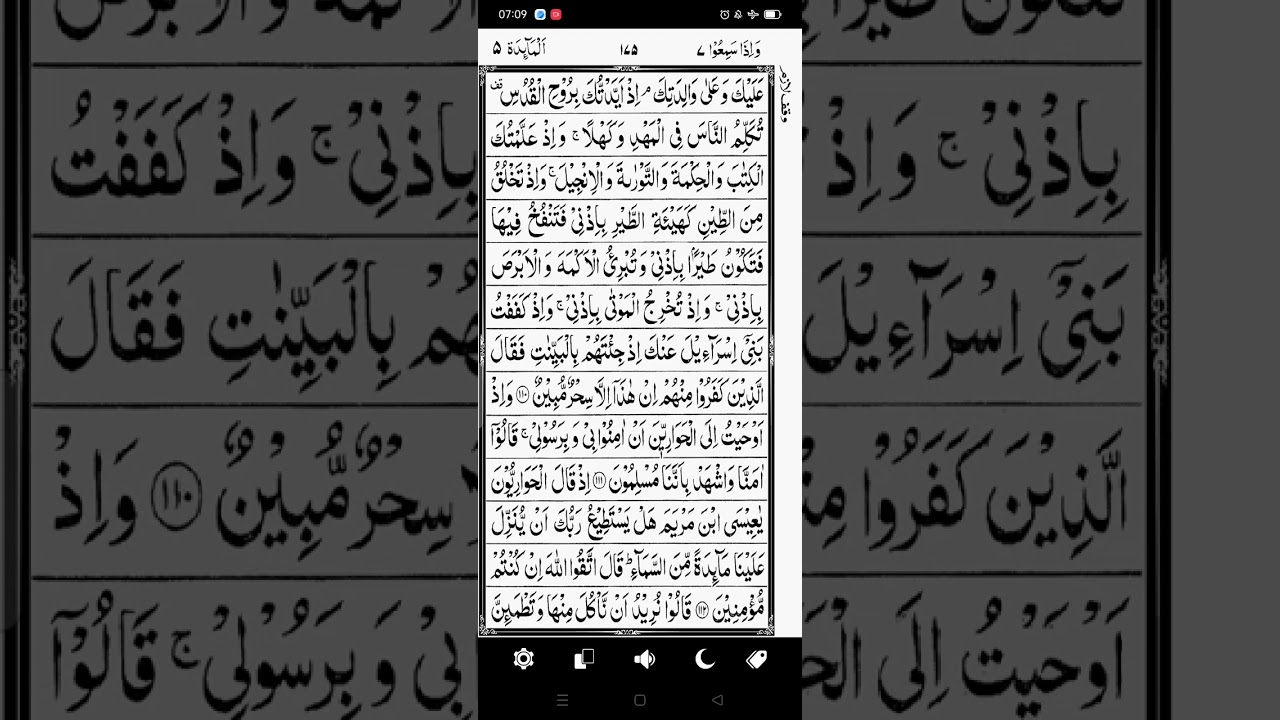 07:09
وَاِذَا سَمِعُوْا ۷ ۱۷۵ اَلْمَآئِدَة ۵
وقف لازم
عَلَيْكَ وَعَلٰى وَالِدَتِكَ ۘ اِذْ اَيَّدْتُّكَ بِرُوْحِ الْقُدُسِ قف
تُكَلِّمُ النَّاسَ فِى الْمَهْدِ وَكَهْلًا ۚ وَاِذْ عَلَّمْتُكَ
الْكِتٰبَ وَالْحِكْمَةَ وَالتَّوْرٰىةَ وَالْاِنْجِيْلَ ۚ وَاِذْ تَخْلُقُ
مِنَ الطِّيْنِ كَهَيْئَةِ الطَّيْرِ بِاِذْنِىْ فَتَنْفُخُ فِيْهَا
فَتَكُوْنُ طَيْرًۢا بِاِذْنِىْ وَ تُبْرِئُ الْاَكْمَهَ وَ الْاَبْرَصَ
بِاِذْنِىْ ۚ وَ اِذْ تُخْرِجُ الْمَوْتٰى بِاِذْنِىْ ۚ وَاِذْ كَفَفْتُ
بَنِىْۤ اِسْرَآءِيْلَ عَنْكَ اِذْ جِئْتَهُمْ بِالْبَيِّنٰتِ فَقَالَ
الَّذِيْنَ كَفَرُوْا مِنْهُمْ اِنْ هٰذَاۤ اِلَّا سِحْرٌ مُّبِيْنٌ ﴿۱۱۰﴾ وَاِذْ
اَوْحَيْتُ اِلَى الْحَوَارِيّٖنَ اَنْ اٰمِنُوْا بِىْ وَ بِرَسُوْلِىْ ۚ قَالُوْۤا
اٰمَنَّا وَاشْهَدْ بِاَنَّنَا مُسْلِمُوْنَ ﴿۱۱۱﴾ اِذْ قَالَ الْحَوَارِيُّوْنَ
يٰعِيْسَى ابْنَ مَرْيَمَ هَلْ يَسْتَطِيْعُ رَبُّكَ اَنْ يُّنَزِّلَ
عَلَيْنَا مَآئِدَةً مِّنَ السَّمَآءِ ؕ قَالَ اتَّقُوا اللّٰهَ اِنْ كُنْتُمْ
مُّؤْمِنِيْنَ ﴿۱۱۲﴾ قَالُوْا نُرِيْدُ اَنْ نَّاْكُلَ مِنْهَا وَ تَطْمَئِنَّ